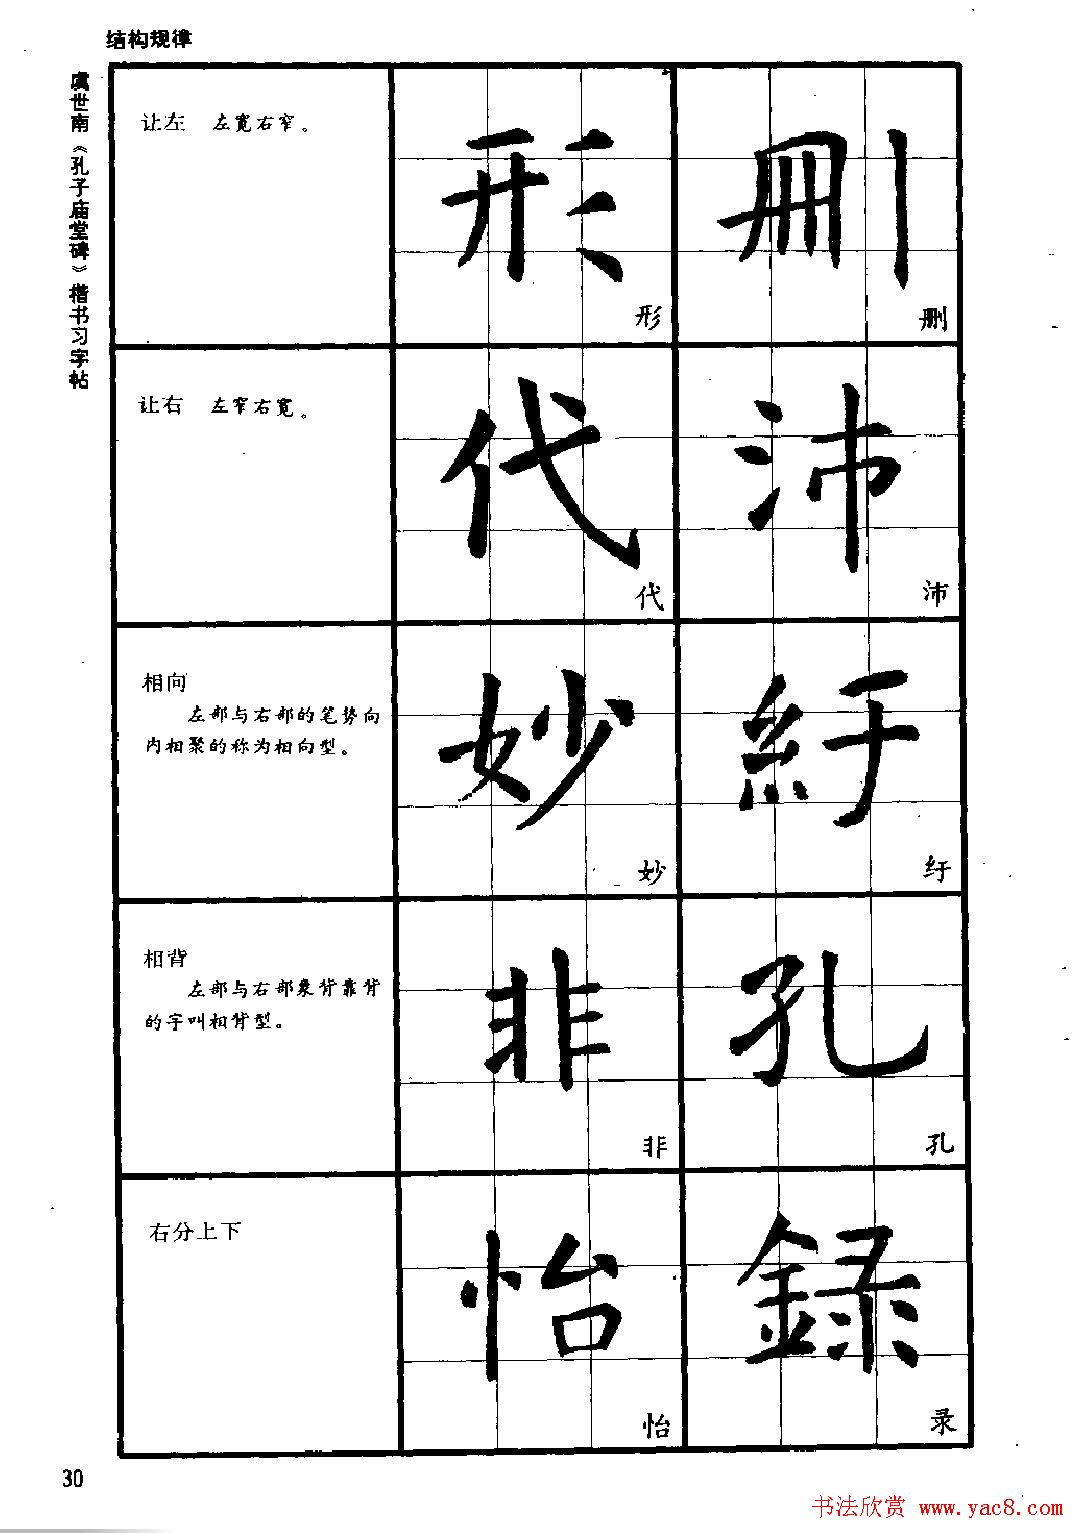 结构规律
虞世南《孔子庙堂碑》楷书习字帖
让左 左宽右窄。
形 刪
形 删
让右 左窄右宽。
代 沛
代 沛
相向
左部与右部的笔势向
内相聚的称为相向型。
妙 紆
妙 纡
相背
左部与右部象背靠背
的字叫相背型。
非 孔
非 孔
右分上下
怡 録
怡 录
30
书法欣赏 www.yac8.com